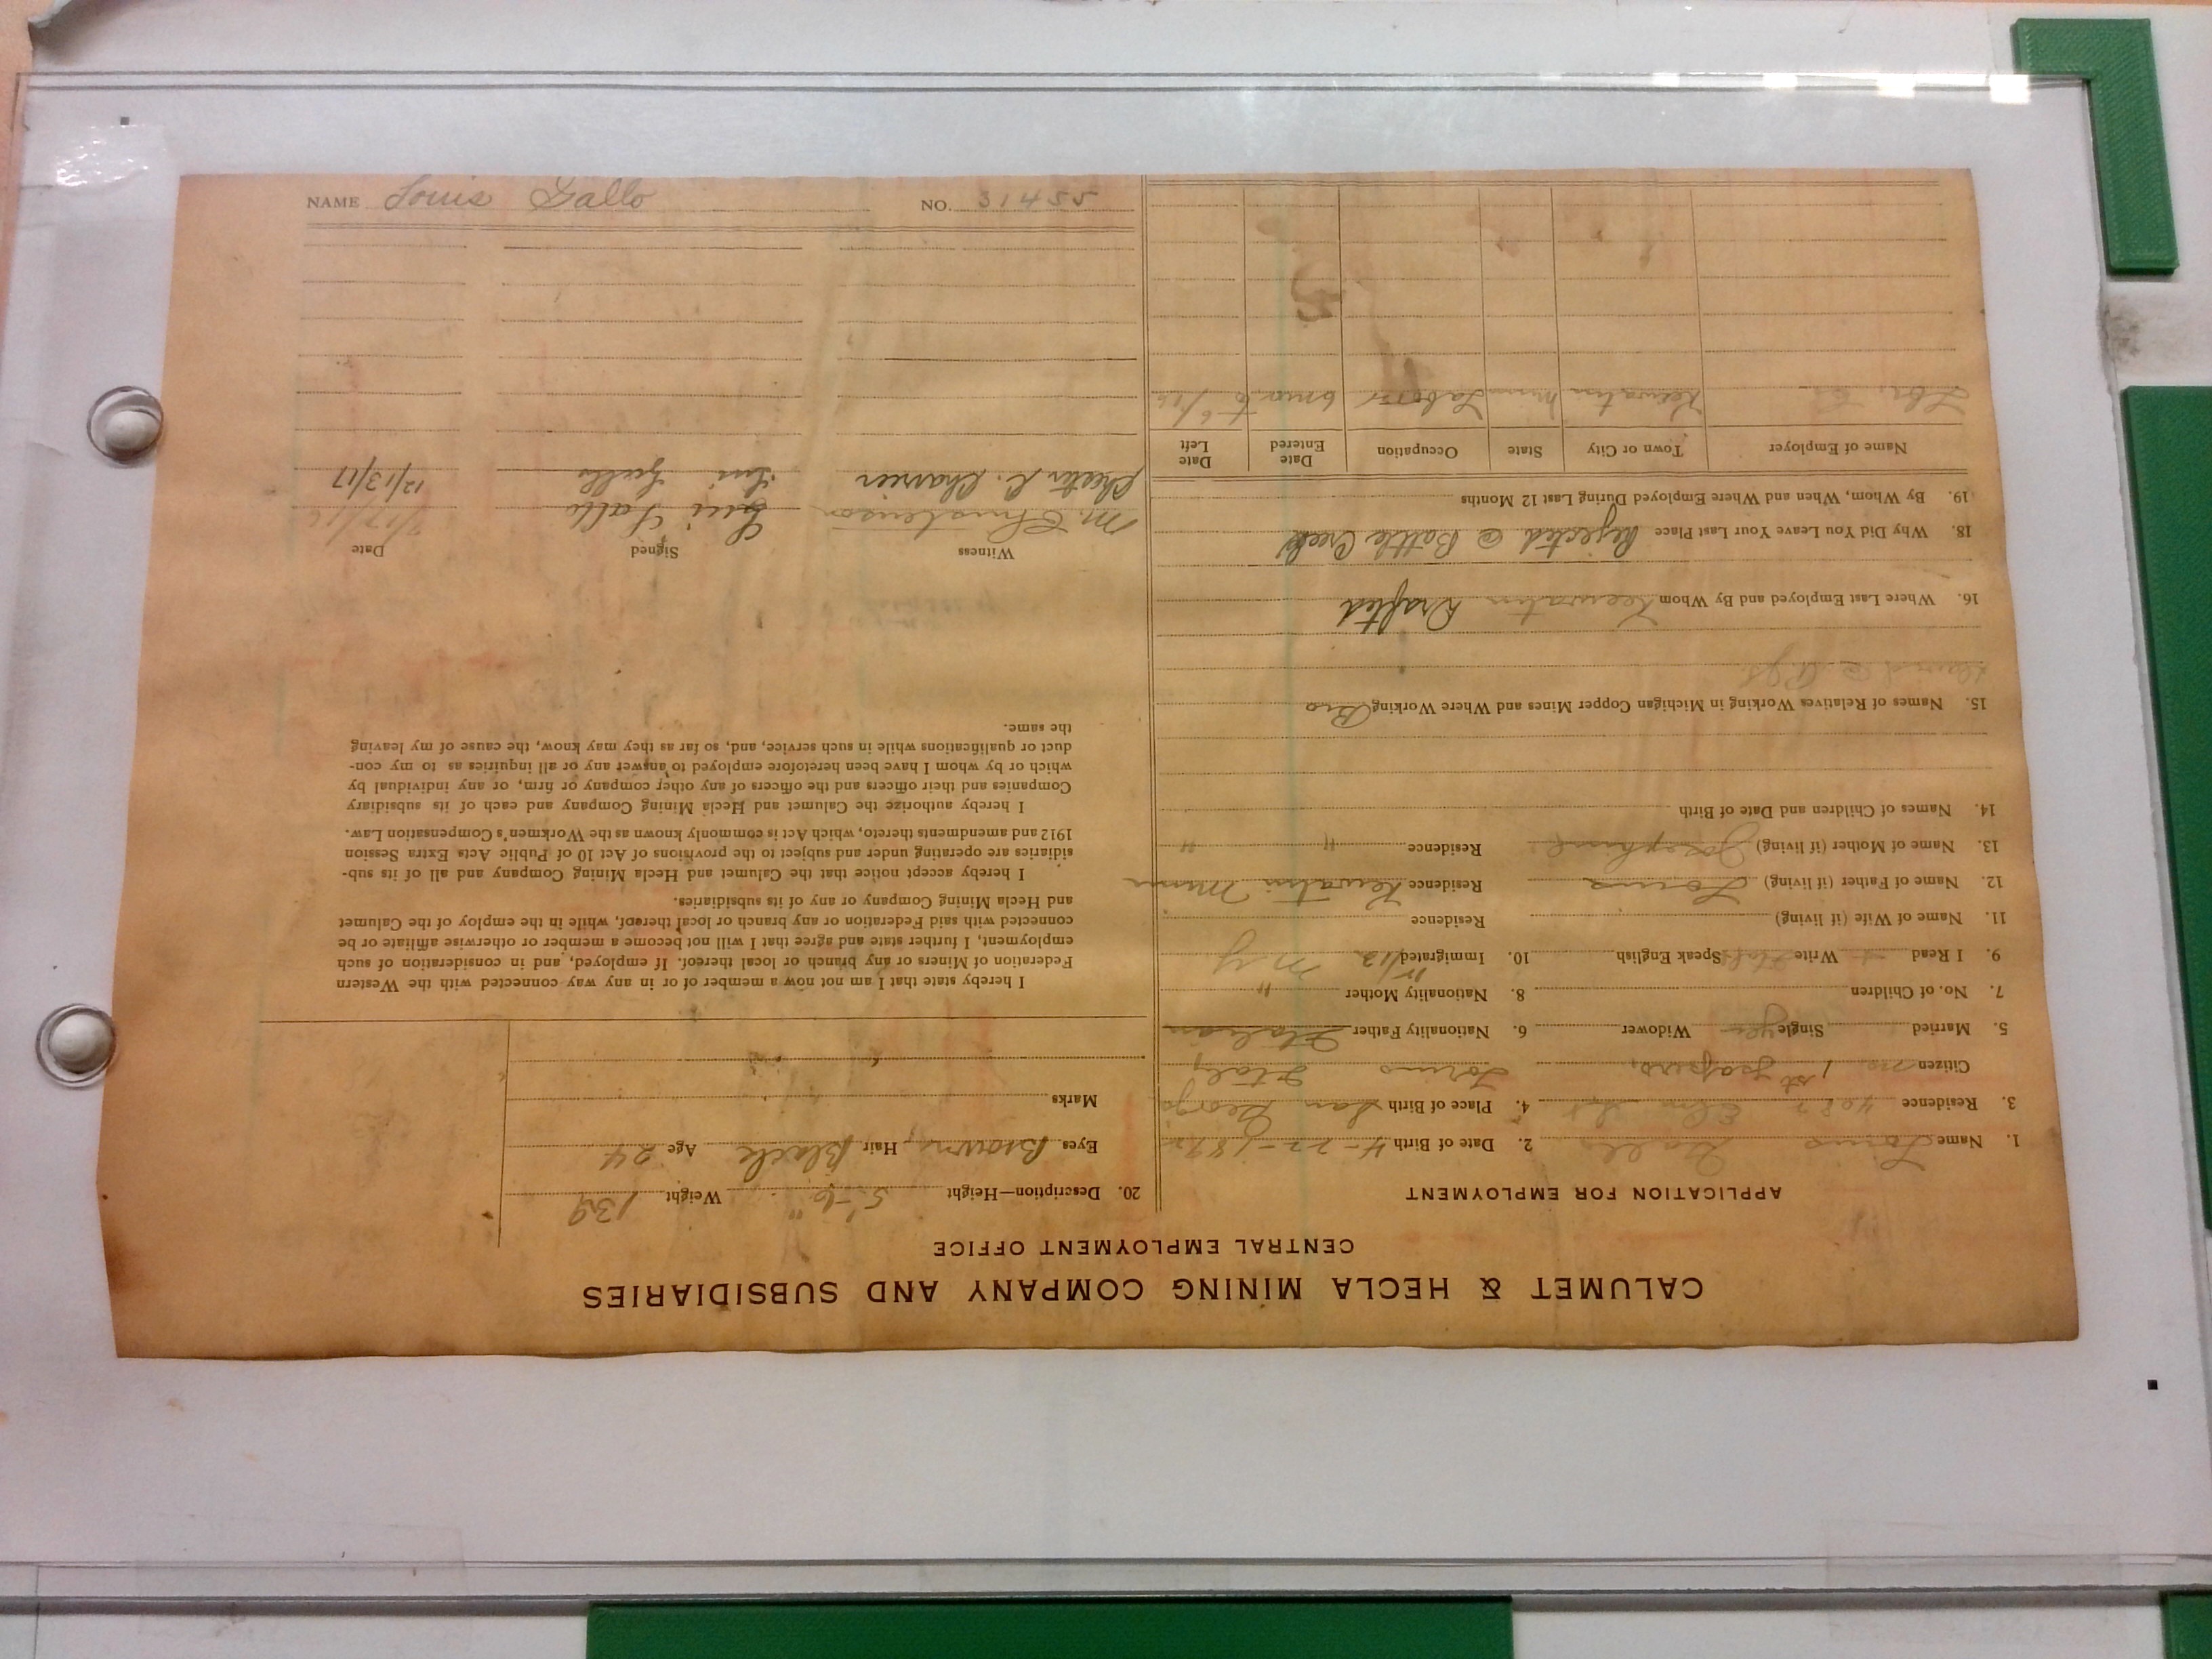 CALUMET & HECLA MINING COMPANY AND SUBSIDIARIES
CENTRAL EMPLOYMENT OFFICE
APPLICATION FOR EMPLOYMENT
1. Name Louis Gallo 2. Date of Birth 4-22-189
3. Residence 4087 Elm St 4. Place of Birth San George
Citizen no 1st papers, Torino Italy
5. Married Single yes Widower 6. Nationality Father Italian
7. No. of Children 8. Nationality Mother "
9. I Read Write Speak English 10. Immigrated /12 NY
11. Name of Wife (if living) Residence
12. Name of Father (if living) Louis Residence Kewatin Minn
13. Name of Mother (if living) Josephine Residence " "
14. Names of Children and Date of Birth
15. Names of Relatives Working in Michigan Copper Mines and Where Working Bro
16. Where Last Employed and By Whom Keewatin Drafted
18. Why Did You Leave Your Last Place Rejected @ Battle Creek
19. By Whom, When and Where Employed During Last 12 Months
Name of Employer Town or City State Occupation Date Entered Date Left
Keewatin Minn Laborer 6 mo to
20. Description—Height 5'-6" Weight 139
Eyes Brown Hair Black Age 24
Marks
I hereby state that I am not now a member of or in any way connected with the Western
Federation of Miners or any branch or local thereof. If employed, and in consideration of such
employment, I further state and agree that I will not become a member or otherwise affiliate or be
connected with said Federation or any branch or local thereof, while in the employ of the Calumet
and Hecla Mining Company or any of its subsidiaries.
I hereby accept notice that the Calumet and Hecla Mining Company and all of its sub-
sidiaries are operating under and subject to the provisions of Act 10 of Public Acts Extra Session
1912 and amendments thereto, which Act is commonly known as the Workmen's Compensation Law.
I hereby authorize the Calumet and Hecla Mining Company and each of its subsidiary
Companies and their officers and the officers of any other company or firm, or any individual by
which or by whom I have been heretofore employed to answer any or all inquiries as to my con-
duct or qualifications while in such service, and, so far as they may know, the cause of my leaving
the same.
Witness Signed Date
M. Christenson Lui Gallo
Chester C. Charrier Lui Gallo 12/13/17
NAME Louis Gallo NO. 31455